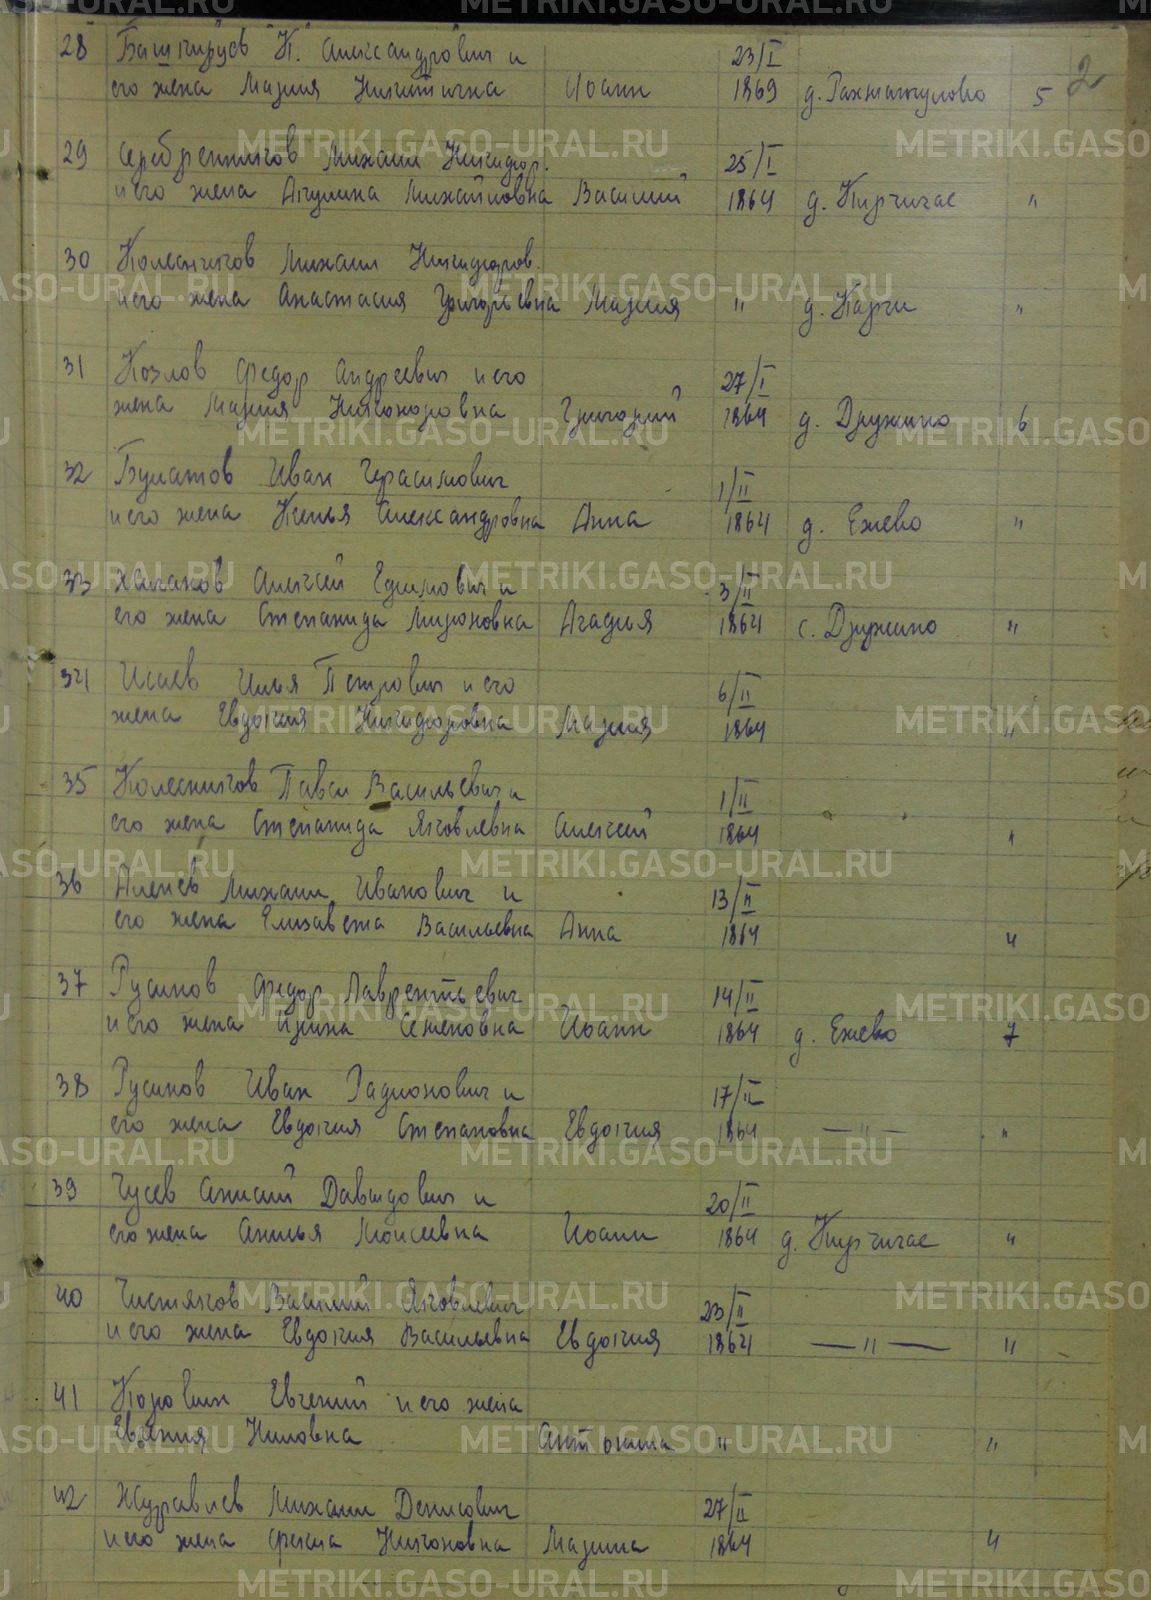 2
28 Башкирцев К. Александрович и 23/I
его жена Мария Никитична Иоанн 1869 д. Рахмангулово 5
29 Серебренников Михаил Никифор. 25/I
и его жена Акулина Михайловна Василий 1864 д. Киргичас "
30 Колесников Михаил Никифоров.
и его жена Анастасия Григорьевна Мария " д. Карги "
31 Козлов Федор Андреевич и его 27/I
жена Мария Никоноровна Григорий 1864 д. Дружино 6
32 Булатов Иван Герасимович 1/II
и его жена Александровна Анна 1864 д. Ежево "
33 Алексей Ефимович и 3/II
его жена Степанида Мироновна Агафья 1864 с. Дружино "
34 Исаев Илья Петрович и его 6/II
жена Евдокия Никифоровна Мария 1864 "
35 Колесников Павел Васильевич и 1/II
его жена Степанида Яковлевна Алексей 1864 "
36 Михаил Иванович и 13/II
его жена Елизавета Васильевна Анна 1864 "
37 Русинов Федор Лаврентьевич 14/II
и его жена Ирина Семеновна Иоанн 1864 д. Ежево 7
38 Русинов Иван Радионович и 17/II
его жена Евдокия Степановна Евдокия 1864 — " — "
39 Гусев Давыдович и 20/II
его жена Моисеевна Иоанн 1864 д. Киргичас "
40 Чистяков Василий Яковлевич 23/II
и его жена Евдокия Васильевна Евдокия 1864 — " — "
41 Коровин Евгений и его жена
Ниловна Антонина " "
42 Журавлев Михаил Денисович 27/II
и его жена Фекла Никоновна Марина 1864 "
METRIKI.GASO-URAL.RU